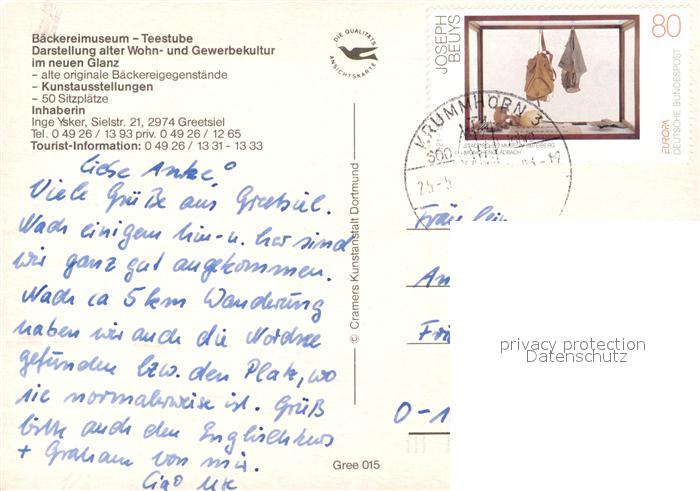 Bäckereimuseum – Teestube
Darstellung alter Wohn- und Gewerbekultur
im neuen Glanz
– alte originale Bäckereigegenstände
– Kunstausstellungen
– 50 Sitzplätze
Inhaberin
Inge Ysker, Sielstr. 21, 2974 Greetsiel
Tel. 0 49 26 / 13 93 priv. 0 49 26 / 12 65
Tourist-Information: 0 49 26 / 13 31 - 13 33
Liebe Antze,
Viele Grüße aus Greetsiel.
Nach einigem hin- u. her sind
wir ganz gut angekommen.
Nach ca 5 km Wanderung
haben wir auch die Nordsee
gefunden bzw. den Platz, wo
sie normalerweise ist. Grüß
bitte auch den Englischkurs
+ Graham von mir.
Ciao
DIE QUALITÄTS
ANSICHTSKARTE
© Cramers Kunstanstalt Dortmund
Gree 015
JOSEPH
BEUYS
80
EUROPA
DEUTSCHE BUNDESPOST
KRUMMHÖRN 3
Fräulein
An
Fri
O-1
privacy protection
Datenschutz